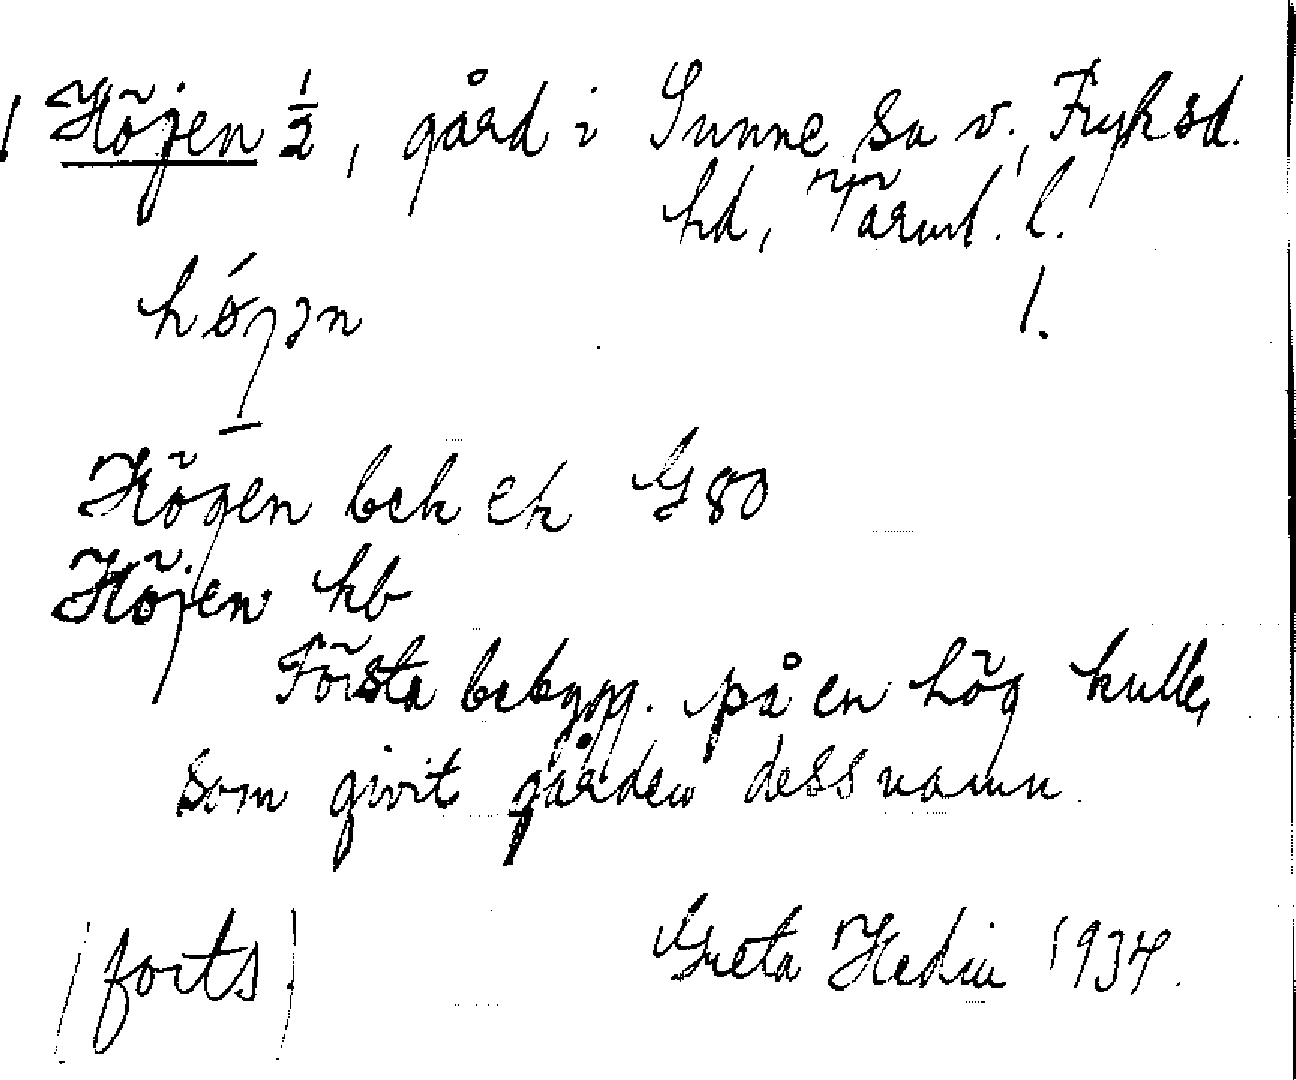 Höjen ½, gård i Sunne sn v., Fryksd.
hd, Värml. l.
1.
Högen bek ek G 80
Höjen hb
Första bebygg. på en hög kulle,
som givit gården dess namn.
(forts) Greta Hedin 1934.